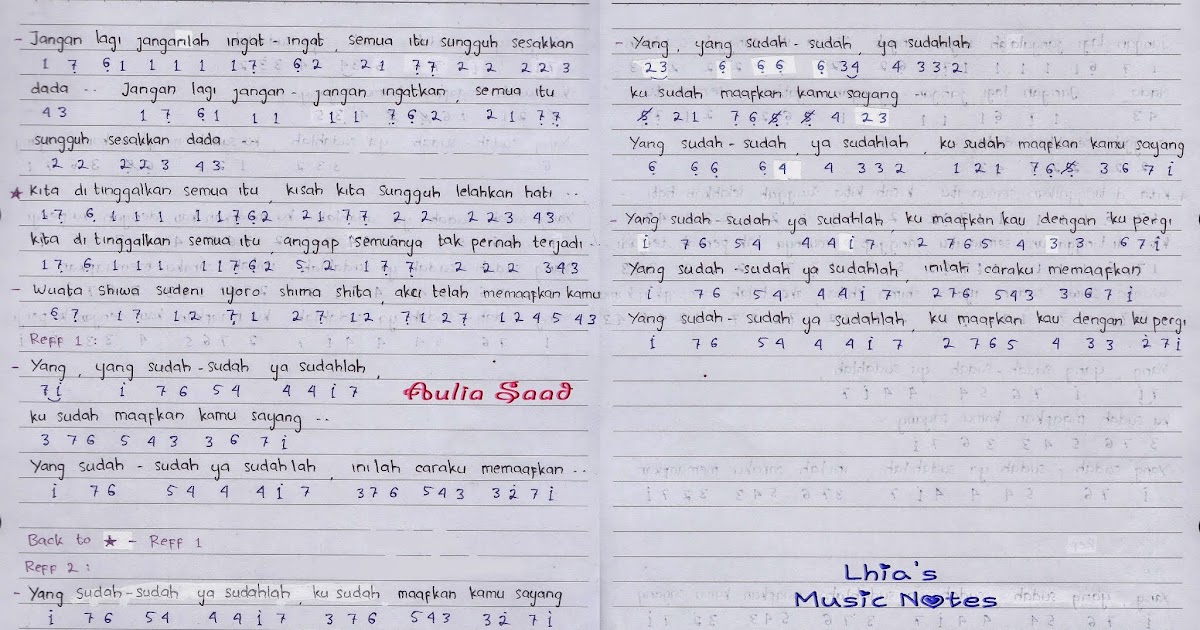 - Jangan lagi janganlah ingat - ingat, semua itu sungguh sesakkan
1 7̣ 6̣1 1 1 1 17̣ 6̣2 21 7̣7̣ 2 2 2 2 3
dada .. Jangan lagi jangan - jangan ingatkan, semua itu
4 3 1 7̣ 6̣1 1 1 1 1 7̣ 6̣ 2 2 1 7̣7̣
sungguh sesakkan dada ...
2 2 2 2 3 4 3
★ Kita di tinggalkan semua itu, kisah kita sungguh lelahkan hati ..
17̣ 6̣ 1 1 1 1 17̣6̣2 2 1 7̣7̣ 2 2 2 2 3 4 3
kita di tinggalkan semua itu, anggap semuanya tak pernah terjadi ..
17̣ 6̣ 1 1 1 1 17̣6̣2 5̣ 2 1 7̣ 7̣ 2 2 2 3 4 3
- Wuata shiwa sudeni iyoro shima shita, aku telah memaafkan kamu
6̣ 7̣ 17̣ 12 7̣1 2 7̣ 12 7̣1 2 7̣ 1 2 4 5 4 3
Reff 1 :
- Yang, yang sudah - sudah ya sudahlah,
7 i i 7 6 5 4 4 4 i 7
Aulia Saad
ku sudah maafkan kamu sayang ..
3 7 6 5 4 3 3 6 7 i
Yang sudah - sudah ya sudahlah, inilah caraku memaafkan ..
i 7 6 5 4 4 4 i 7 3 7 6 5 4 3 3 2̇ 7 i
Back to ★ - Reff 1
Reff 2 :
- Yang sudah-sudah ya sudahlah, ku sudah maafkan kamu sayang
i 7 6 5 4 4 4 i 7 3 7 6 5 4 3 3 2̇ 7 i
- Yang, yang sudah - sudah, ya sudahlah
2 3 6̣ 6̣ 6̣ 6̣ 3 4 4 3 3 2 1
ku sudah maafkan kamu sayang
2 1 7̣ 6̣ 4 2 3
Yang sudah - sudah, ya sudahlah, ku sudah maafkan kamu sayang
6̣ 6̣ 6̣ 6̣ 4 4 3 3 2 1 2 1 7̣ 6̣ 3 6 7 i
- Yang sudah - sudah ya sudahlah, ku maafkan kau dengan ku pergi
i 7 6 5 4 4 4 i 7 2 7 6 5 4 3 3 6 7 i
Yang sudah - sudah ya sudahlah, inilah caraku memaafkan
i 7 6 5 4 4 4 i 7 2 7 6 5 4 3 3 6 7 i
Yang sudah - sudah ya sudahlah, ku maafkan kau dengan ku pergi
i 7 6 5 4 4 4 i 7 2 7 6 5 4 3 3 2 7 i
Lhia's
Music Notes